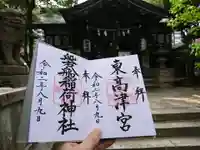 奉拝
東高津宮
令和二年八月九日
奉拝
稲荷神社
令和二年八月九日